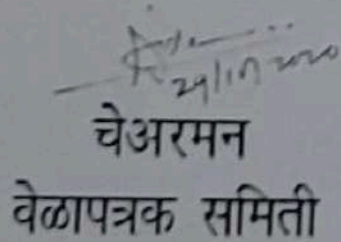 चेअरमन
वेळापत्रक समिती